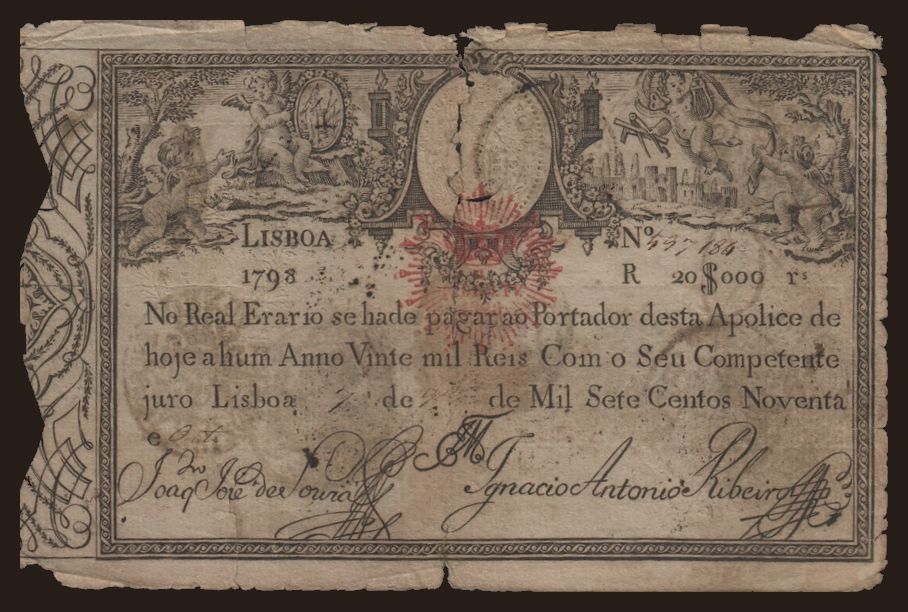 LISBOA Nº
1798 R 20$000 rs
No Real Erario se hade pagar ao Portador desta Apolice de
hoje a hum Anno Vinte mil Reis Com o Seu Competente
juro Lisboa 7 de de Mil Sete Centos Noventa
e
Joaqm José de Souza Ignacio Antonio Ribeiro